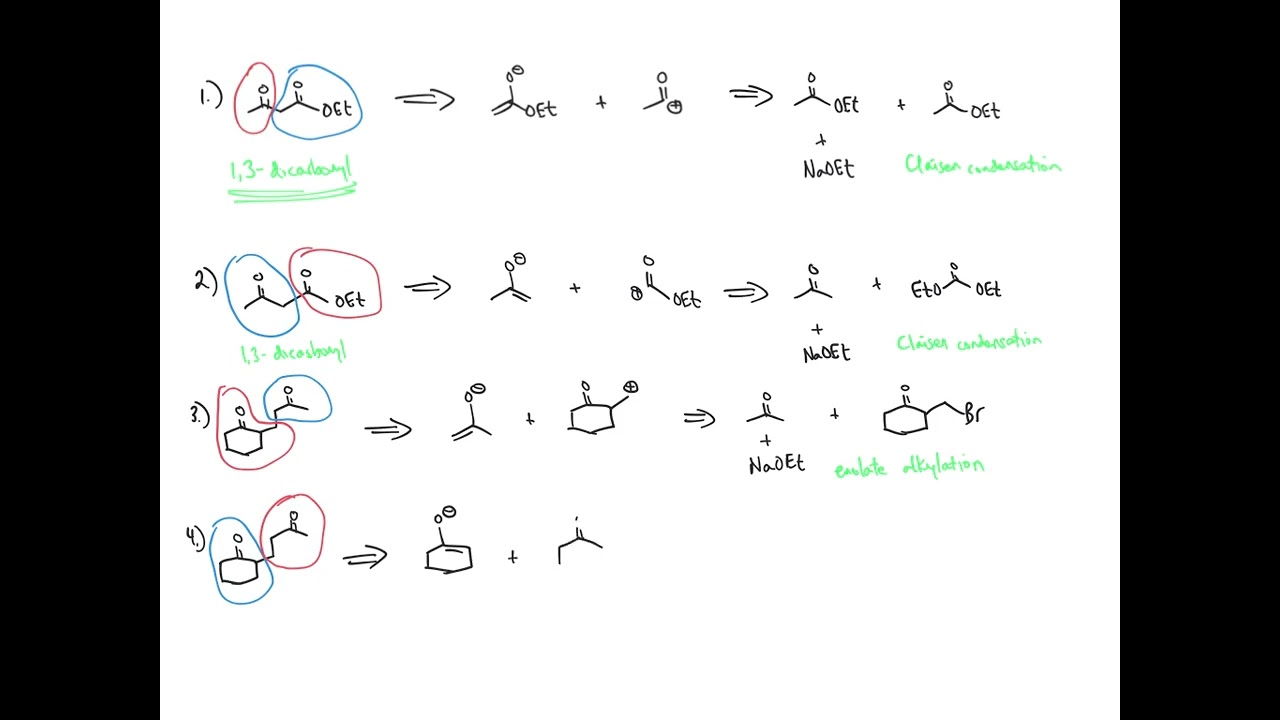 1.) O O OEt ⇒ O⊖ OEt + O ⊕ ⇒ O OEt + O OEt
+
NaOEt
1,3-dicarbonyl
Claisen condensation
2.) O O OEt ⇒ O⊖ + O ⊕ OEt ⇒ O + EtO O OEt
+
NaOEt
1,3-dicarbonyl
Claisen condensation
3.) O O ⇒ O⊖ + O ⊕ ⇒ O + O Br
+
NaOEt
enolate alkylation
4.) O O ⇒ O⊖ +